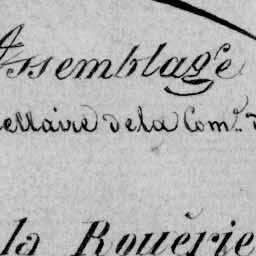 Assemblage
ellaire de la Com.e d
la Rouërie